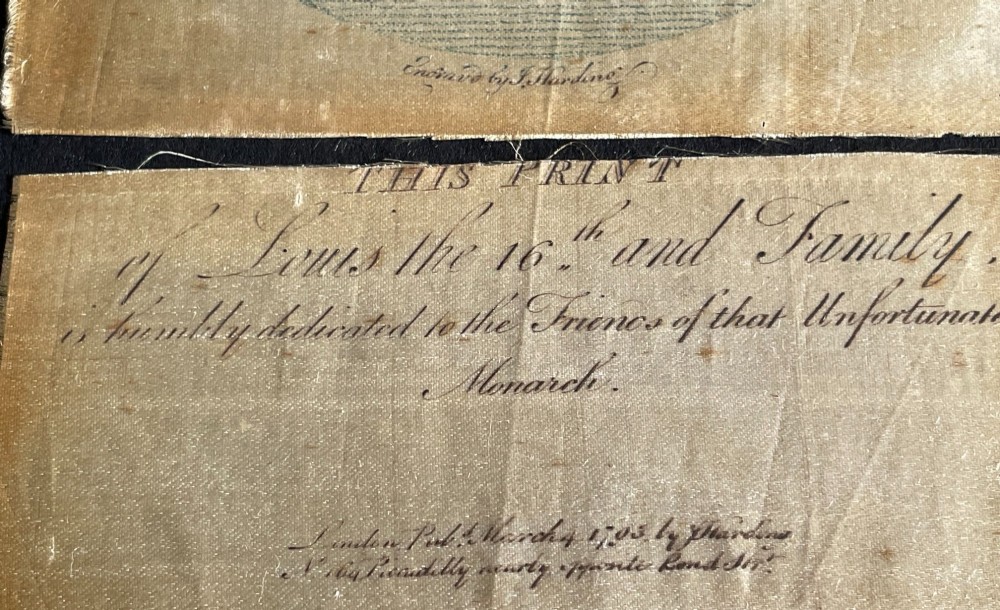 Engrav'd by J. Harding
THIS PRINT
of Louis the 16.th and Family.
is humbly dedicated to the Friends of that Unfortunate
Monarch.
London Pub.d March 4 1793 by J Harding
N 164 Piccadilly nearly opposite Bond Str.t